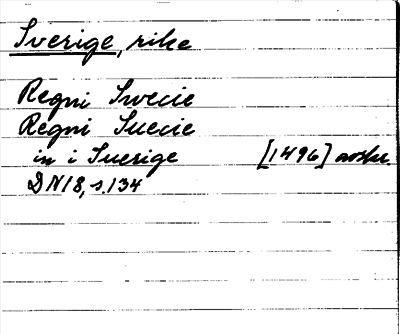 Sverige, rike
Regni Swecie
Regni Suecie
in i Suerige [1496] avskr.
DN 18, s. 134